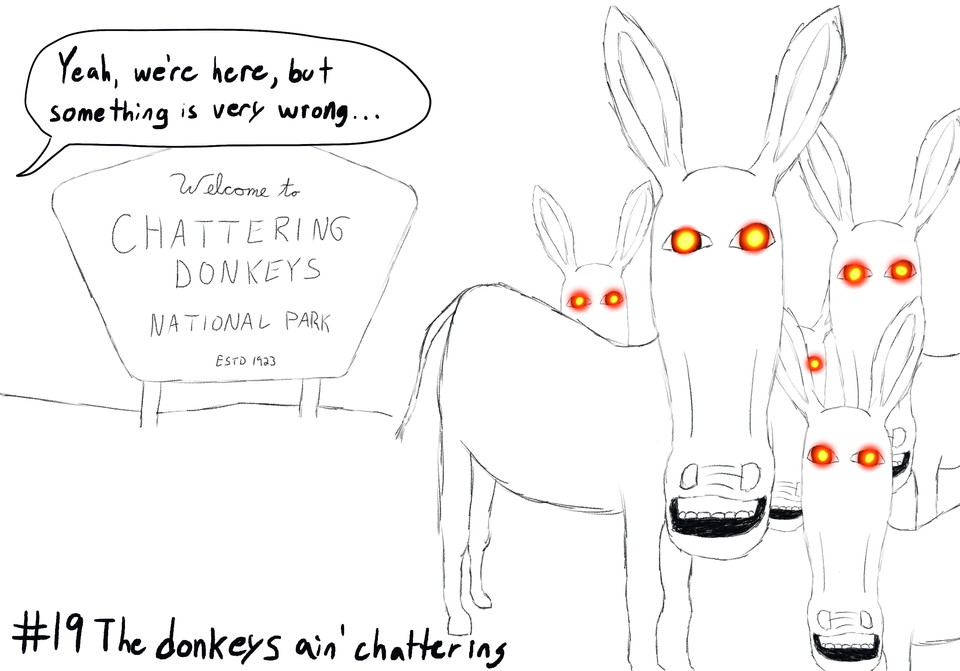 Yeah, we're here, but
something is very wrong...
Welcome to
CHATTERING
DONKEYS
NATIONAL PARK
ESTD 1923
#19 The donkeys ain' chattering